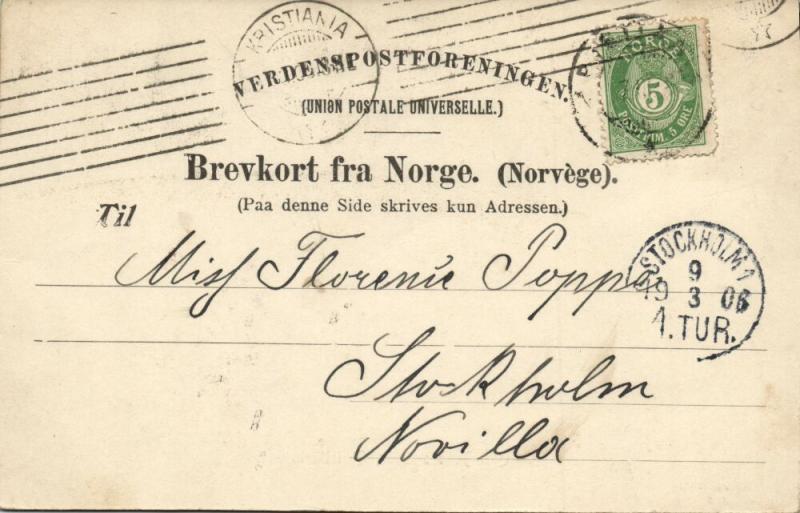 KRISTIANIA
VERDENSPOSTFORENINGEN.
(UNION POSTALE UNIVERSELLE.)
NORGE
5
POSTFRIM 5 ØRE
Brevkort fra Norge. (Norvège).
(Paa denne Side skrives kun Adressen.)
Til
Miss Florence Popper
STOCKHOLM 1
9
19 3 06
1. TUR.
Stockholm
Novilla